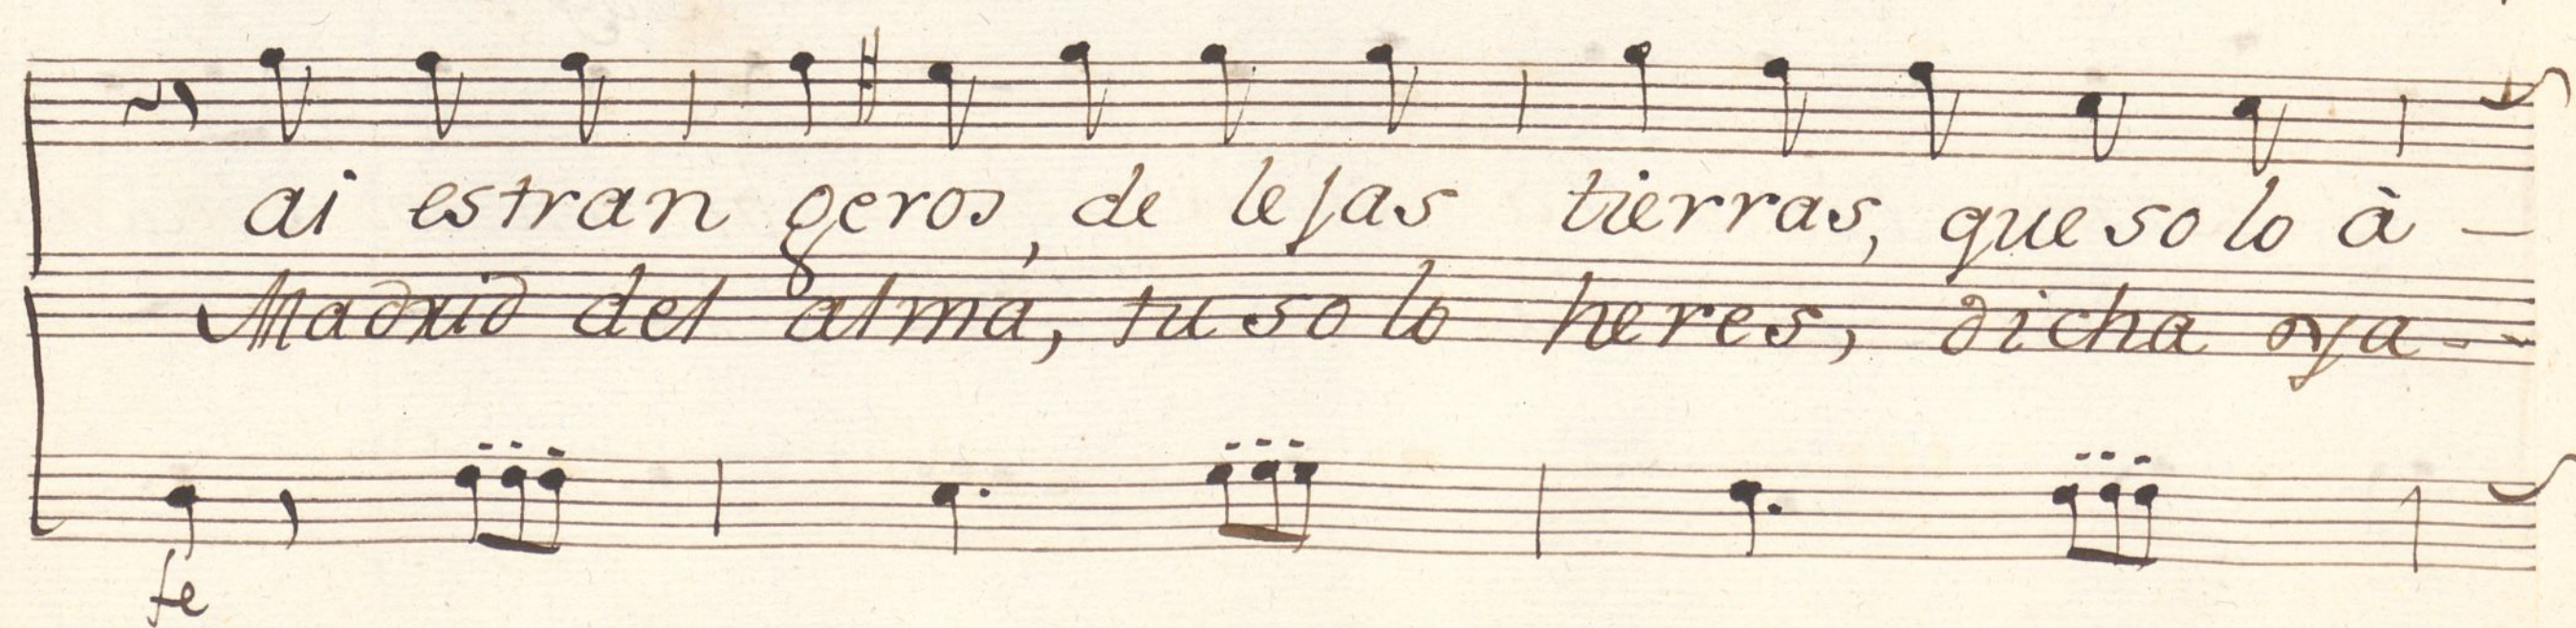 ai estran geros, de lejas tierras, que so lo à -
Madrid del alma, tu so lo heres, dicha y a - -
fe